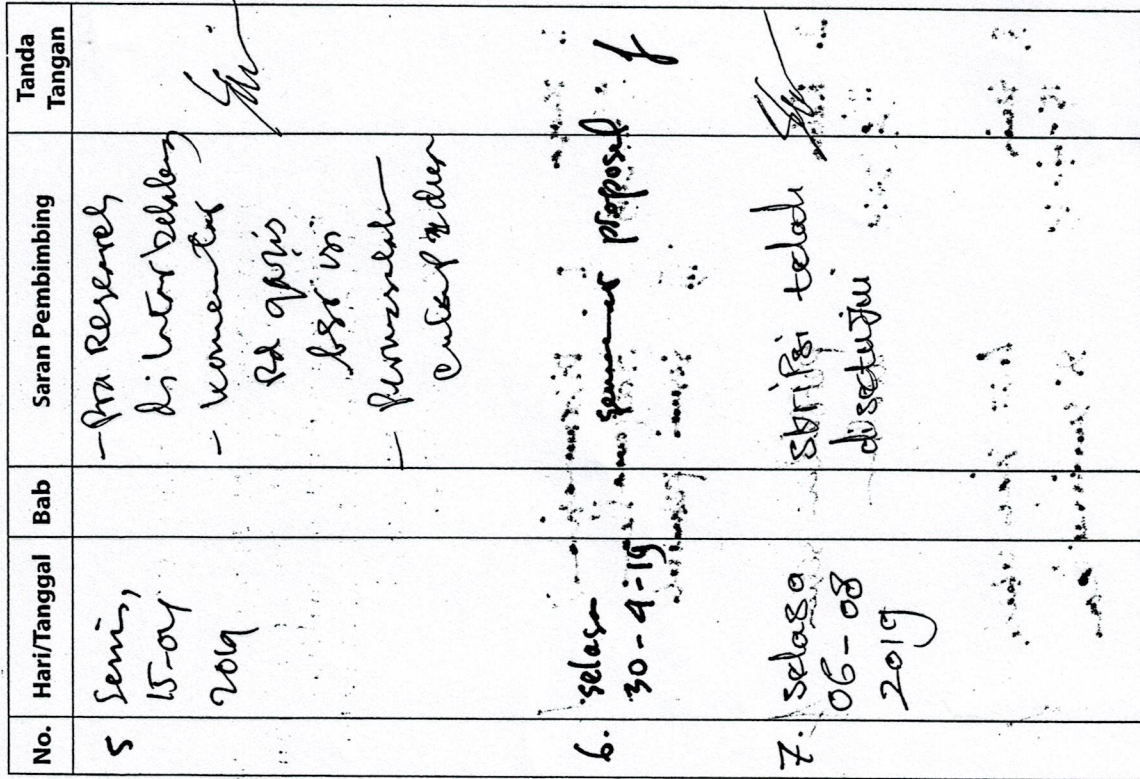 No. Hari/Tanggal Bab Saran Pembimbing Tanda Tangan
5 Senin,
15-04
2019
- Pra Research
di latar belakang
- komentar
pd garis
- Perumusalah
6. selasa
30-4-19
seminar proposal
7. selasa
06-08
2019
skripsi telah
disetujui